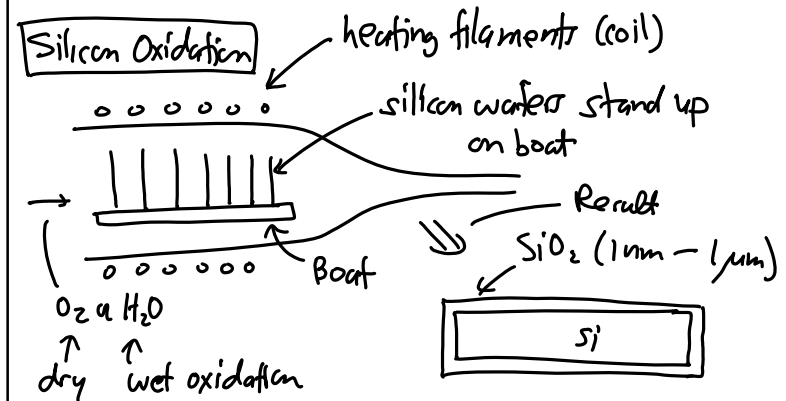 Silicon Oxidation
heating filaments (coil)
silicon wafers stand up
on boat
Result
SiO₂ (1nm - 1μm)
Boat
O₂ or H₂O
Si
dry wet oxidation